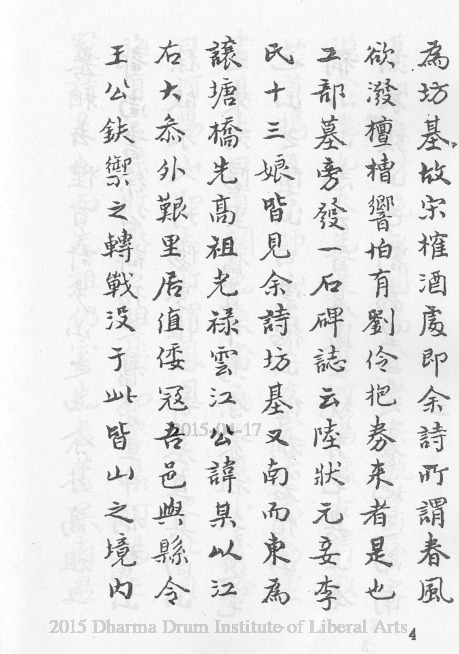 為坊基故宋榷酒處即余詩所謂春風
欲潑檀槽響怕有劉伶抱券來者是也
工部墓旁發一石碑誌云陸狀元妾李
氏十三娘皆見余詩坊基又南而東為
讓塘橋先高祖光祿雲江公諱某以江
右大叅外艱里居值倭冦吾邑與縣令
王公鈇禦之轉戰没于此皆山之境内
2015-04-17
2015 Dharma Drum Institute of Liberal Arts
4